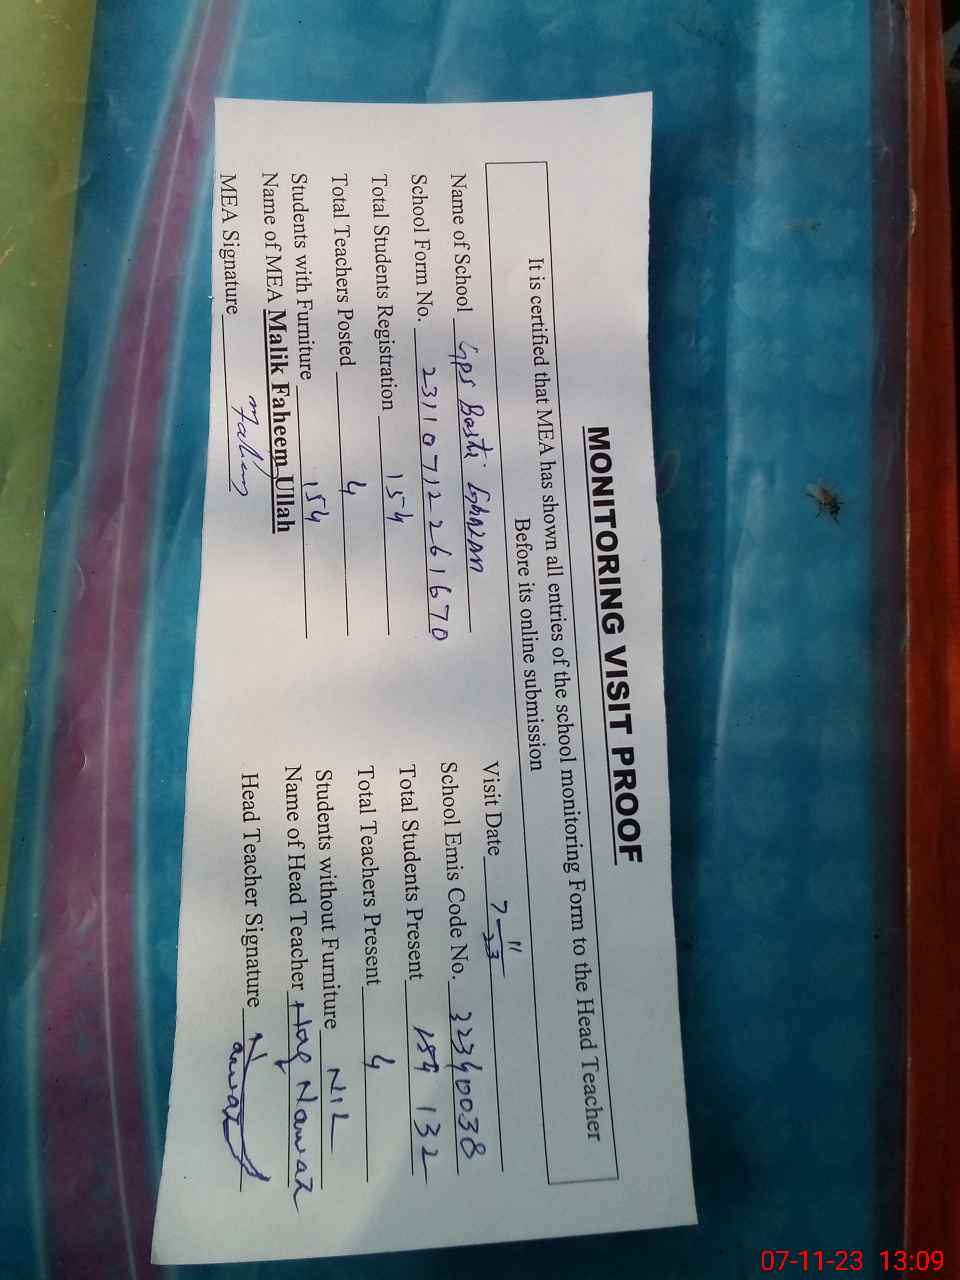 MONITORING VISIT PROOF
It is certified that MEA has shown all entries of the school monitoring Form to the Head Teacher
Before its online submission
Name of School GPS Basti Ghazan Visit Date 7-11-23
School Form No. 23110712261670 School Emis Code No. 32340038
Total Students Registration 154 Total Students Present 132
Total Teachers Posted 4 Total Teachers Present 4
Students with Furniture 154 Students without Furniture NIL
Name of MEA Malik Faheem Ullah Name of Head Teacher Haq Nawaz
MEA Signature Fahim Head Teacher Signature Nawaz
07-11-23 13:09